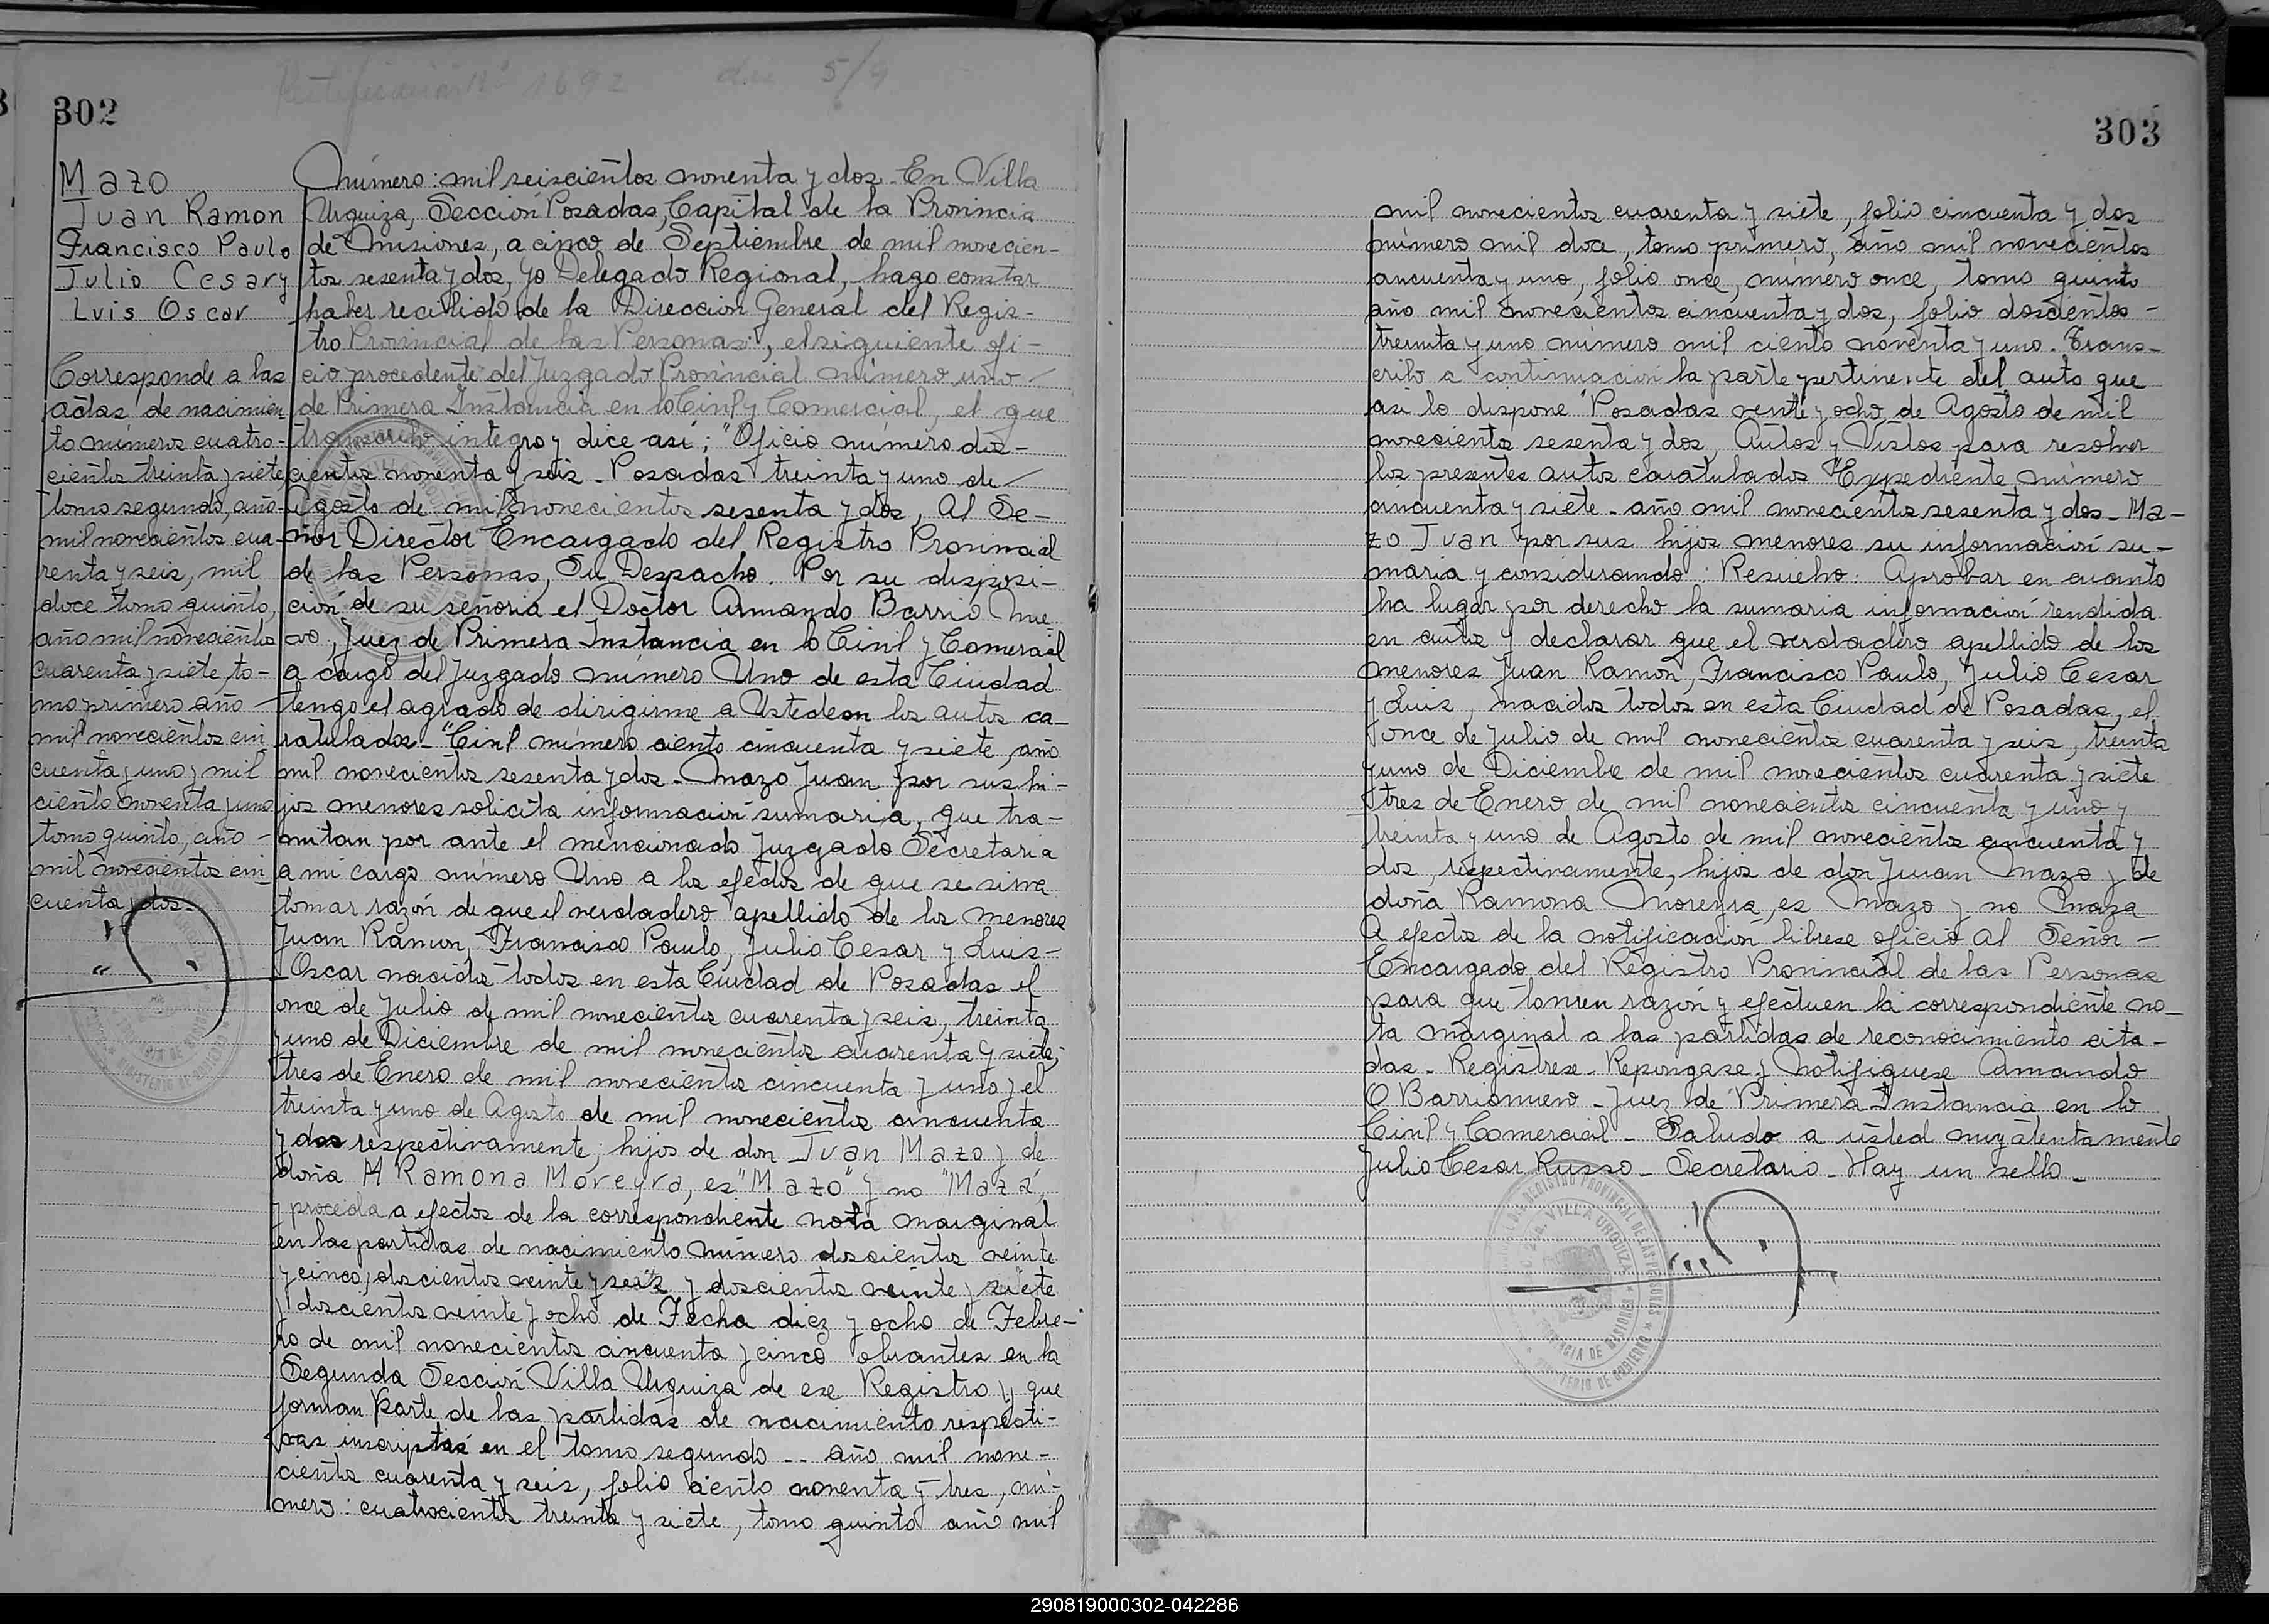 Rectificación Nº 1692 de 5/9
302
Mazo
Juan Ramon
Francisco Paulo
Julio Cesar y
Luis Oscar
Corresponde a las
actas de nacimien
to números cuatro-
cientos treinta y siete
tomo segundo, año-
mil novecientos cua-
renta y seis, mil
doce tomo quinto,
año mil novecientos
cuarenta y siete, to-
mo primero año -
mil novecientos cin
cuenta y uno y mil
ciento noventa y uno
tomo quinto, año -
mil novecientos cin_
cuenta y dos-
Número: mil seiscientos noventa y dos- En Villa
Urquiza, Sección Posadas, Capital de la Provincia
de Misiones, a cinco de Septiembre de mil novecien-
tos sesenta y dos, yo Delegado Regional, hago constar
haber recibido de la Direccion General del Regis-
tro Provincial de las Personas, el siguiente ofi-
cio procedente del Juzgado Provincial número uno
de Primera Instancia en lo Civil y Comercial, el que
transcribo integro y dice asi: "Oficio número dos-
cientos noventa y seis- Posadas treinta y uno de
Agosto de mil novecientos sesenta y dos, Al Se-
ñor Director Encargado del Registro Provincial
de las Personas, Su Despacho. Por su disposi-
ción de su señoria el Doctor Armando Barrio Nue
vo, Juez de Primera Instancia en lo Civil y Comercial
a cargo del Juzgado número Uno de esta Ciudad
tengo el agrado de dirigirme a Usted en los autos ca_
ratulados- "Civil número ciento cincuenta y siete, año
mil novecientos sesenta y dos- Mazo Juan por sus hi-
jos menores solicita información sumaria, que tra-
mitan por ante el mencionado Juzgado Secretaria
a mi cargo número Uno a los efectos de que se sirva
tomar razón de que el verdadero apellido de los menores
Juan Ramon, Francisco Paulo, Julio Cesar y Luis-
Oscar nacidos todos en esta Ciudad de Posadas el
once de Julio de mil novecientos cuarenta y seis, treinta
y uno de Diciembre de mil novecientos cuarenta y siete,
tres de Enero de mil novecientos cincuenta y uno y el
treinta y uno de Agosto de mil novecientos cincuenta
y dos respectivamente, hijos de don Juan Mazo y de
doña Ramona Moreyra, es "Mazo" y no "Maza",
y proceda a efectos de la correspondiente nota marginal
en las partidas de nacimiento número doscientos veinte
y cinco, doscientos veinte y seis y doscientos veinte y siete
y doscientos veinte y ocho de Fecha diez y ocho de Febre-
ro de mil novecientos cincuenta y cinco obrantes en la
Segunda Sección Villa Urquiza de ese Registro y que
forman parte de las partidas de nacimiento respecti-
vas inscriptas en el tomo segundo -- año mil nove-
cientos cuarenta y seis, folio ciento noventa y tres, nú-
mero: cuatrocientos treinta y siete, tomo quinto año mil
303
mil novecientos cuarenta y siete, folio cincuenta y dos
número mil doce, tomo primero, año mil novecientos
cincuenta y uno, folio once, número once, tomo quinto
año mil novecientos cincuenta y dos, folio doscientos -
treinta y uno número mil ciento noventa y uno. Trans-
cribo a continuación la parte pertinente del auto que
asi lo dispone "Posadas veinte y ocho de Agosto de mil
novecientos sesenta y dos, Autos y Vistos para resolver
los presentes autos caratulados "Expediente número
cincuenta y siete- año mil novecientos sesenta y dos- Ma-
zo Juan por sus hijos menores su información su-
maria y considerando: Resuelvo: Aprobar en cuanto
ha lugar por derecho la sumaria información rendida
en autos y declarar que el verdadero apellido de los
menores Juan Ramón, Francisco Paulo, Julio Cesar
y Luis, nacidos todos en esta Ciudad de Posadas, el
once de Julio de mil novecientos cuarenta y seis, treinta
y uno de Diciembre de mil novecientos cuarenta y siete
tres de Enero de mil novecientos cincuenta y uno y
treinta y uno de Agosto de mil novecientos cincuenta y
dos, respectivamente, hijos de don Juan Mazo y de
doña Ramona Moreyra, es Mazo y no Maza
A efectos de la notificación librese oficio al Señor -
Encargado del Registro Provincial de las Personas
para que tomen razón y efectuen la correspondiente no_
ta marginal a las partidas de reconocimiento cita-
das- Registrese- Repongase y Notifiquese Armando
O Barrionuevo- Juez de Primera Instancia en lo
Civil y Comercial- Saludo a usted muy atentamente
Julio Cesar Russo- Secretario- Hay un sello-
REGISTRO PROVINCIAL DE LAS PERSONAS
VILLA URQUIZA
PROVINCIA DE MISIONES
MINISTERIO DE GOBIERNO
290819000302-042286